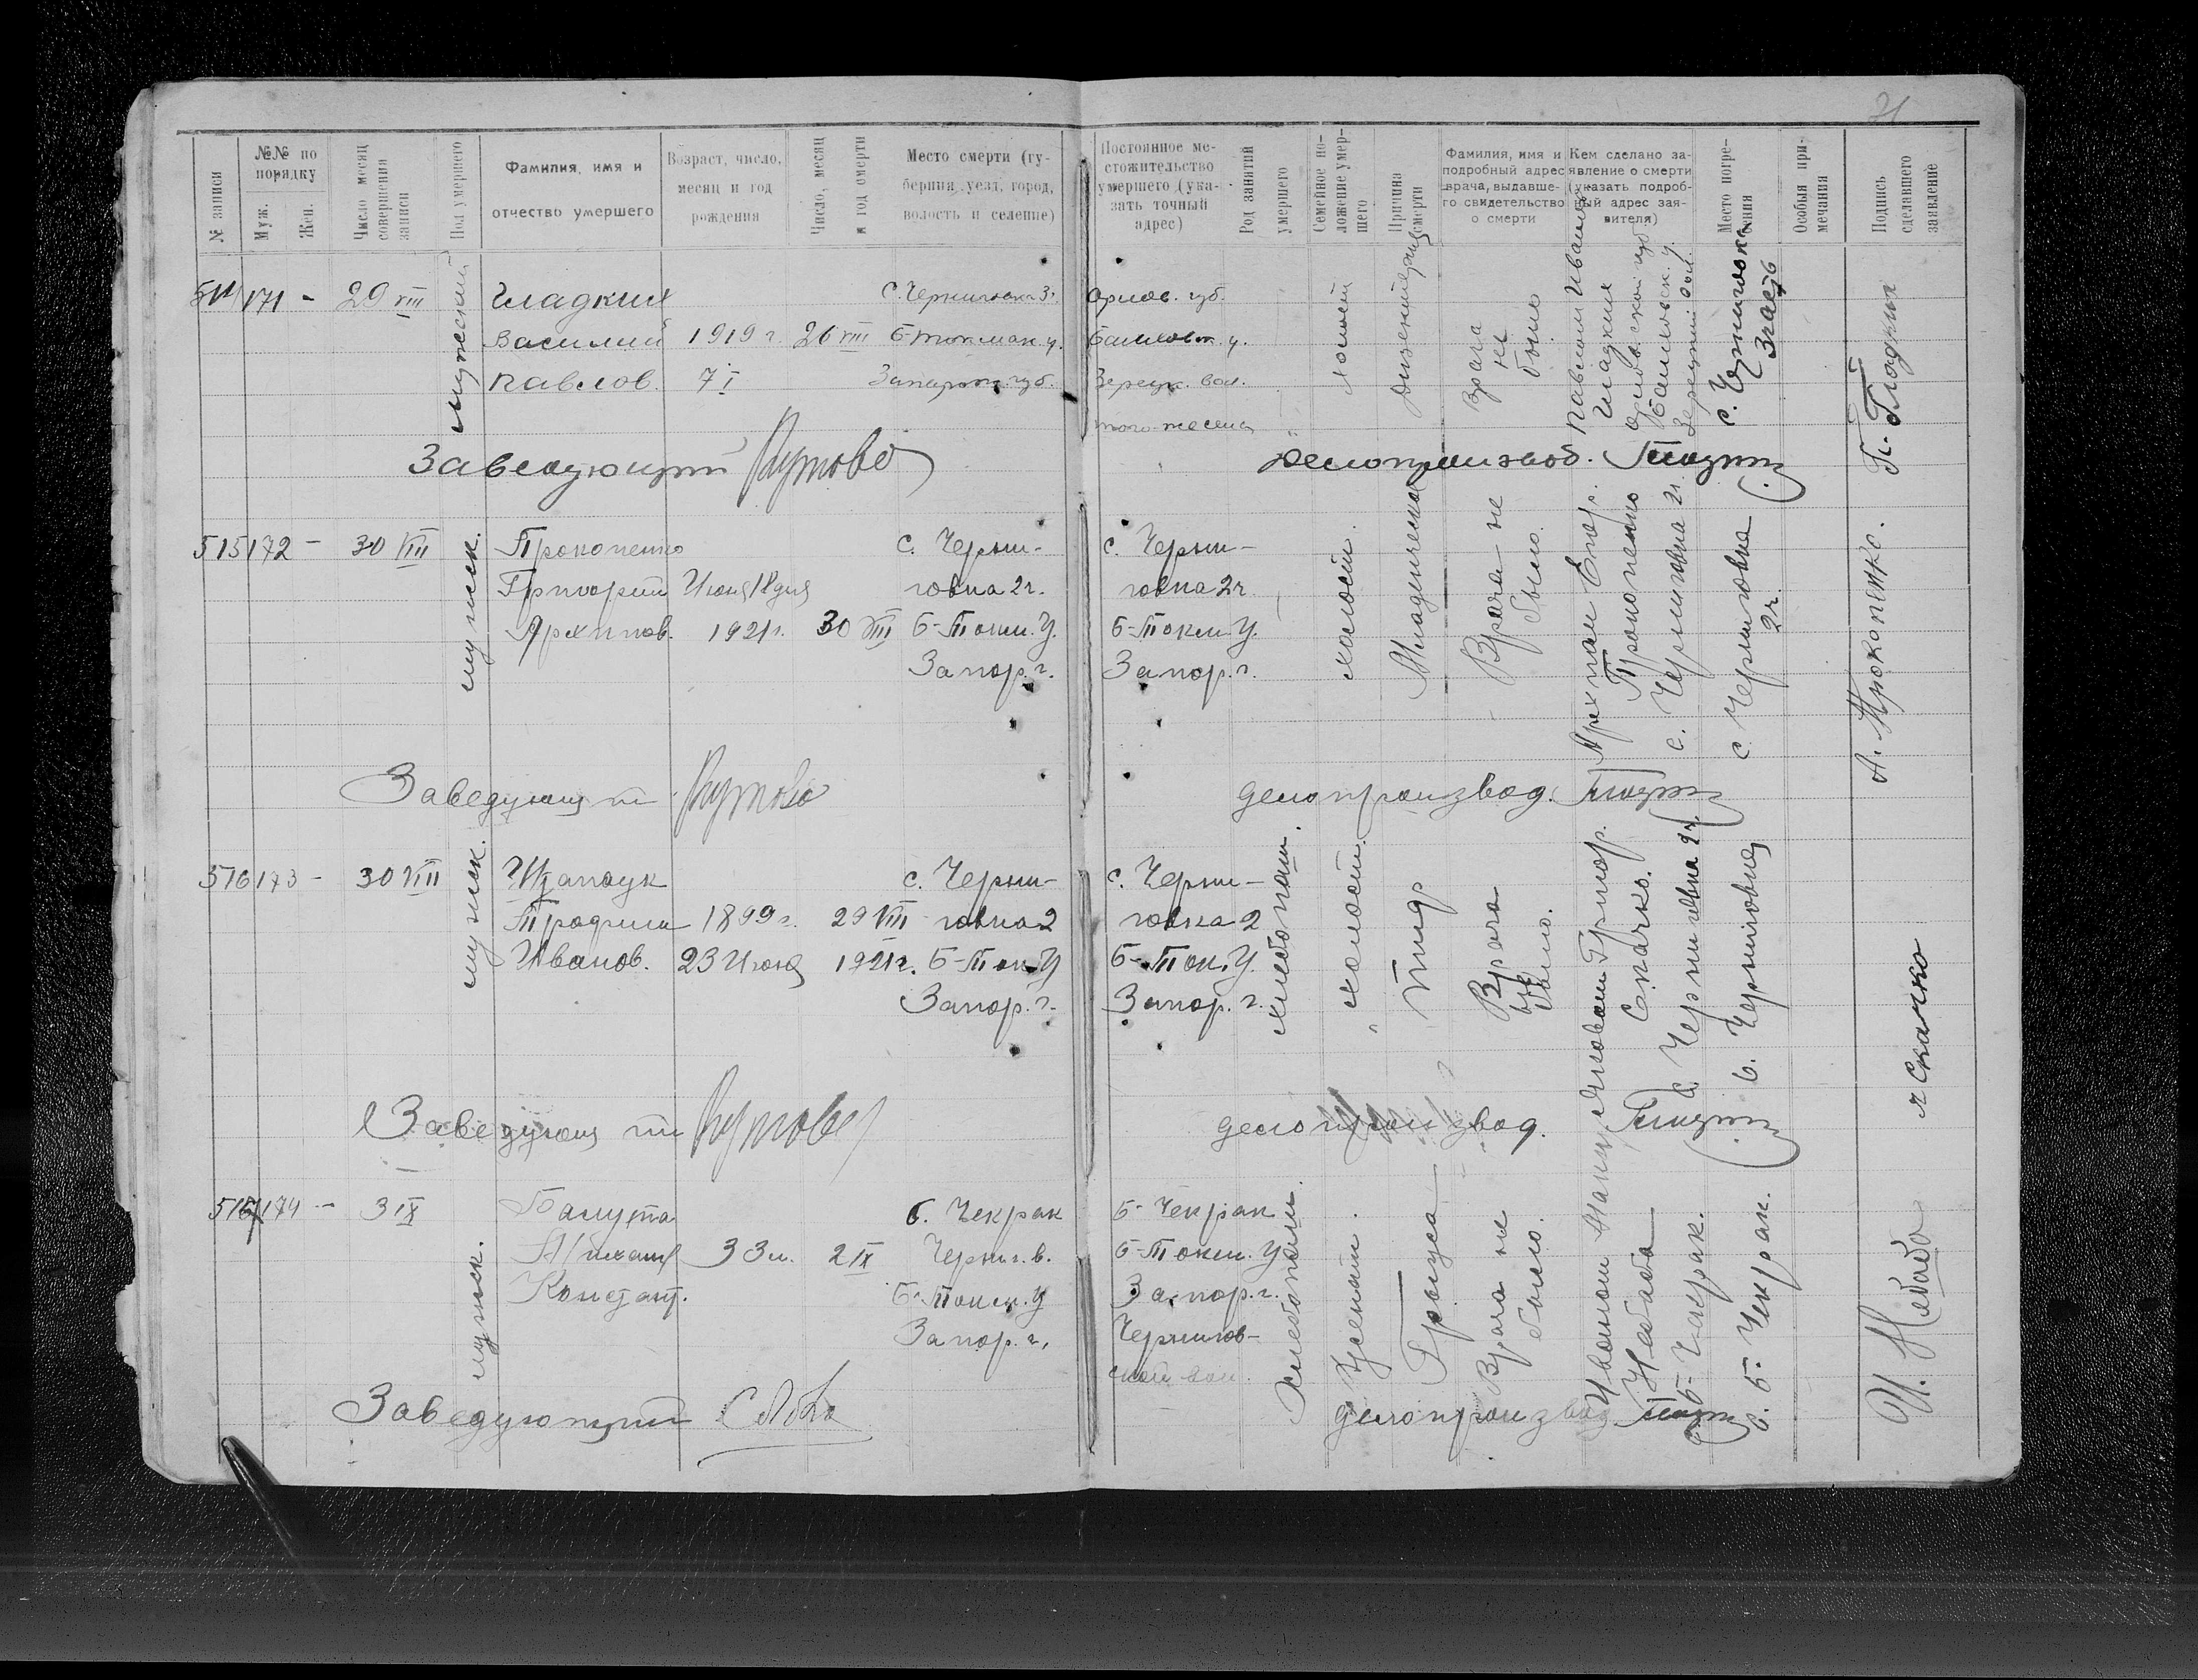 21
№ записи
№№ по порядку
Муж.
Жен.
Число месяц совершения записи
Пол умершего
Фамилия, имя и отчество умершего
Возраст, число, месяц и год рождения
Число, месяц и год смерти
Место смерти (губерния, уезд, город, волость и селение)
Постоянное местожительство умершего (указать точный адрес)
Род занятий умершего
Семейное положение умершего
Причина смерти
Фамилия, имя и подробный адрес врача, выдавшего свидетельство о смерти
Кем сделано заявление о смерти (указать подробный адрес заявителя)
Место погребения
Особыя примечания
Подпись сделавшего заявление
514 171 - 29 VIII
мужеский
Гладких
Василий
Павлов.
1919 г.
7 I
26 VIII
с. Черниговка 3
Б Токмак. у.
Запорож. губ.
Орлов. губ.
того же села
холост
Врача
не
было
Павлом Иванов
Гладких
с. Черниговка
3 часть
П. Гладких
Заведующий
делопроизвод.
515 172 - 30 VIII
мужск.
Прокопенко
Григорий
Архипов.
Июня 18 дня
1921 г.
30 VIII
с. Черни-
говка 2 ч.
Б-Токм. У.
Запор. г.
с. Черни-
говка 2 ч
Б-Токм. У.
Запор. г.
холост.
Младенческая
Врача не
было.
Архипом Егор.
Прокопенко
с. Черниговка 2 ч.
с. Черниговка
2 ч.
А. Прокопенко.
Заведующий
делопроизвод.
516 173 - 30 VIII
мужск.
Трофим
Иванов.
1899 г.
23 Июня
29 VIII
1921 г.
с. Черни-
говка 2
Б-Ток. У
Запор. г.
с. Черни-
говка 2
Б-Ток. У.
Запор. г.
хлебопаш.
холост.
Тиф
Врача
не
было.
Яковом Григор.
Скачко.
с. Черниговка 2 ч.
с. Черниговка
Я Скачко
Заведующий
делопроизвод.
517 174 - 3 IX
мужск.
Михаил
Констант.
33 л.
2 IX
с. Чекрак
Черниг. в.
Б-Токм. У
Запор. г.
Б-Чекрак
Б-Токм. У
Запор. г.
Чернигов-
ской вол.
Хлебопаш.
Женат.
Врача не
было.
Небаба
с. Б-Чекрак.
с. Б-Чекрак.
И. Небаба
Заведующий
делопроизвод